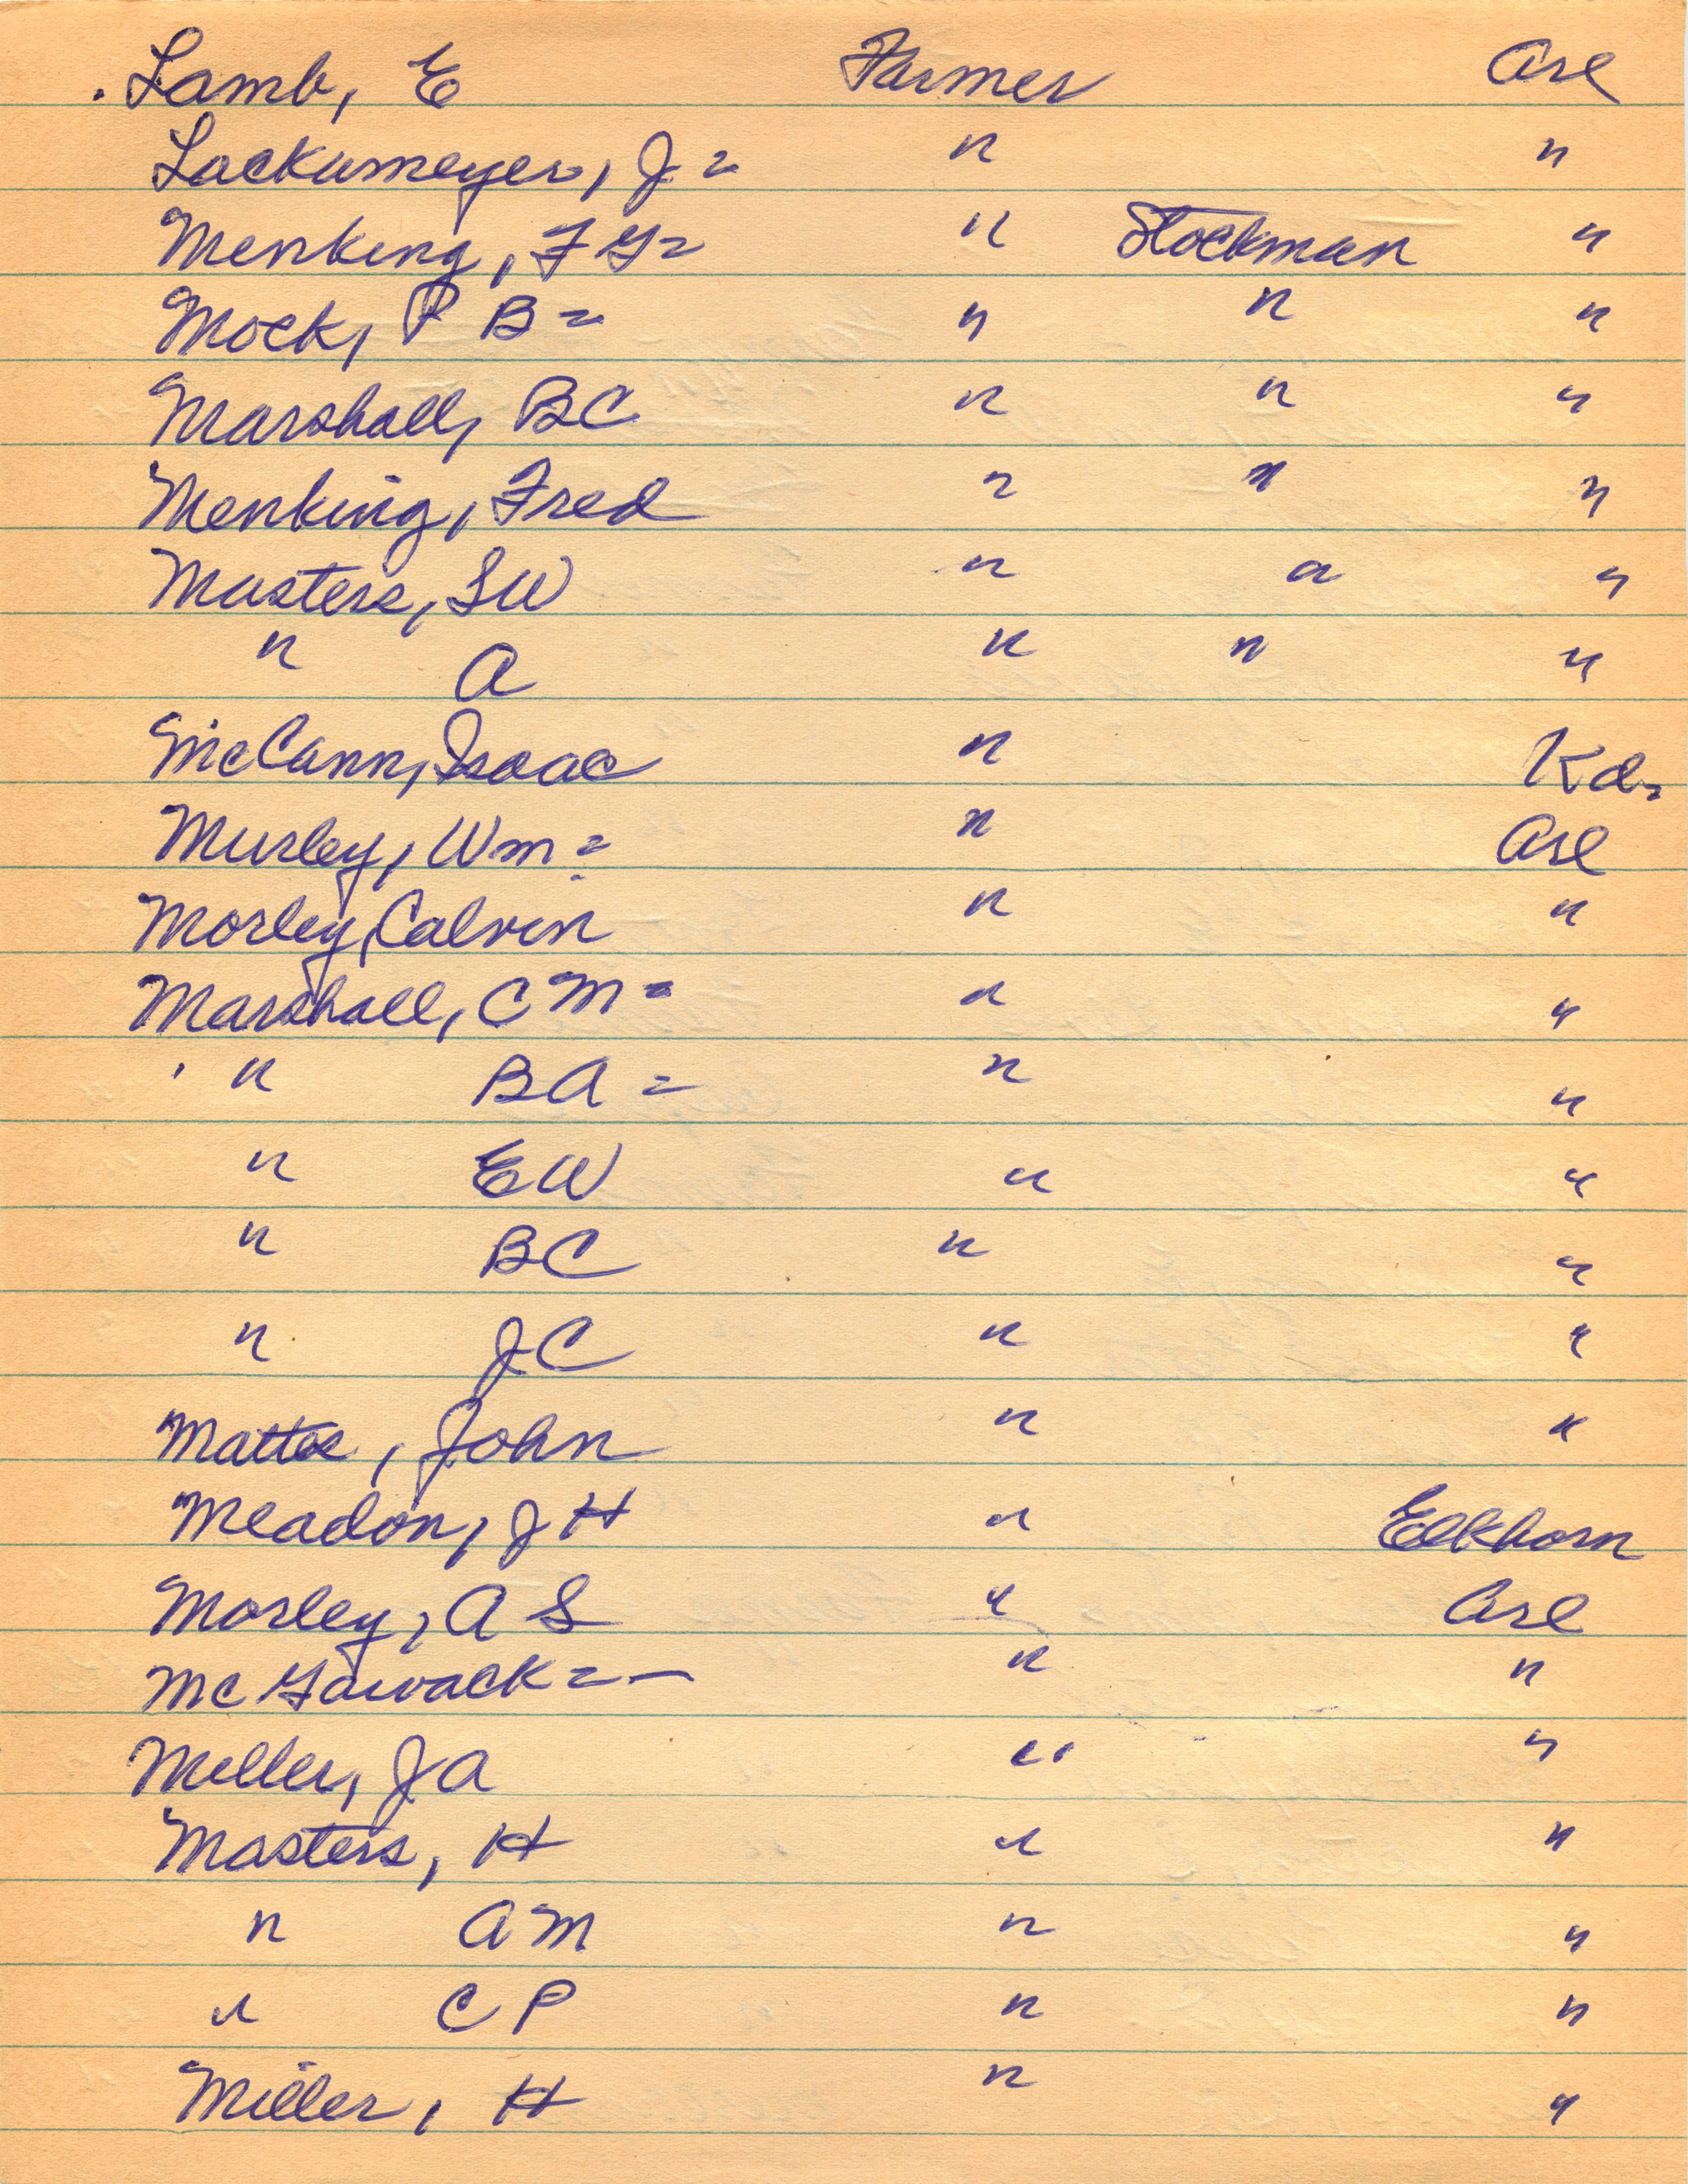 . Lamb, E Farmer Arl
Lockumeyer, J = " "
Menking, F G= " Stockman "
Mock, P B = " " "
Marshall, BC " " "
Menking, Fred " " "
Masters, SW " " "
" A " " "
McCann, Isaac " Kd.
Murley, Wm = " Arl
Morley, Calvin " "
Marshall, C M = " "
" BA = " "
" EW " "
" BC " "
" JC " "
Mattes, John " "
Meadon, J H " Elkhorn
Morley, A S " Arl
" "
Miller, JA " "
Masters, H " "
" A M " "
" C P " "
Miller, H " "